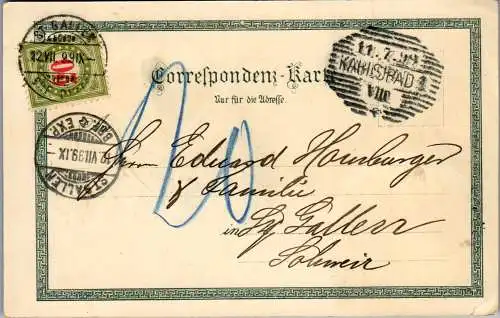 ST. GALLEN
12.VII.99.IX
10
11.7.99
KARLSBAD 1
VIII
Correspondenz-Karte
Nur für die Adresse.
20
ST. GALLEN
12.VII.99.IX
BRF. EXP.
Herrn Eduard Homburger
& Familie
in St. Gallen
Schweiz